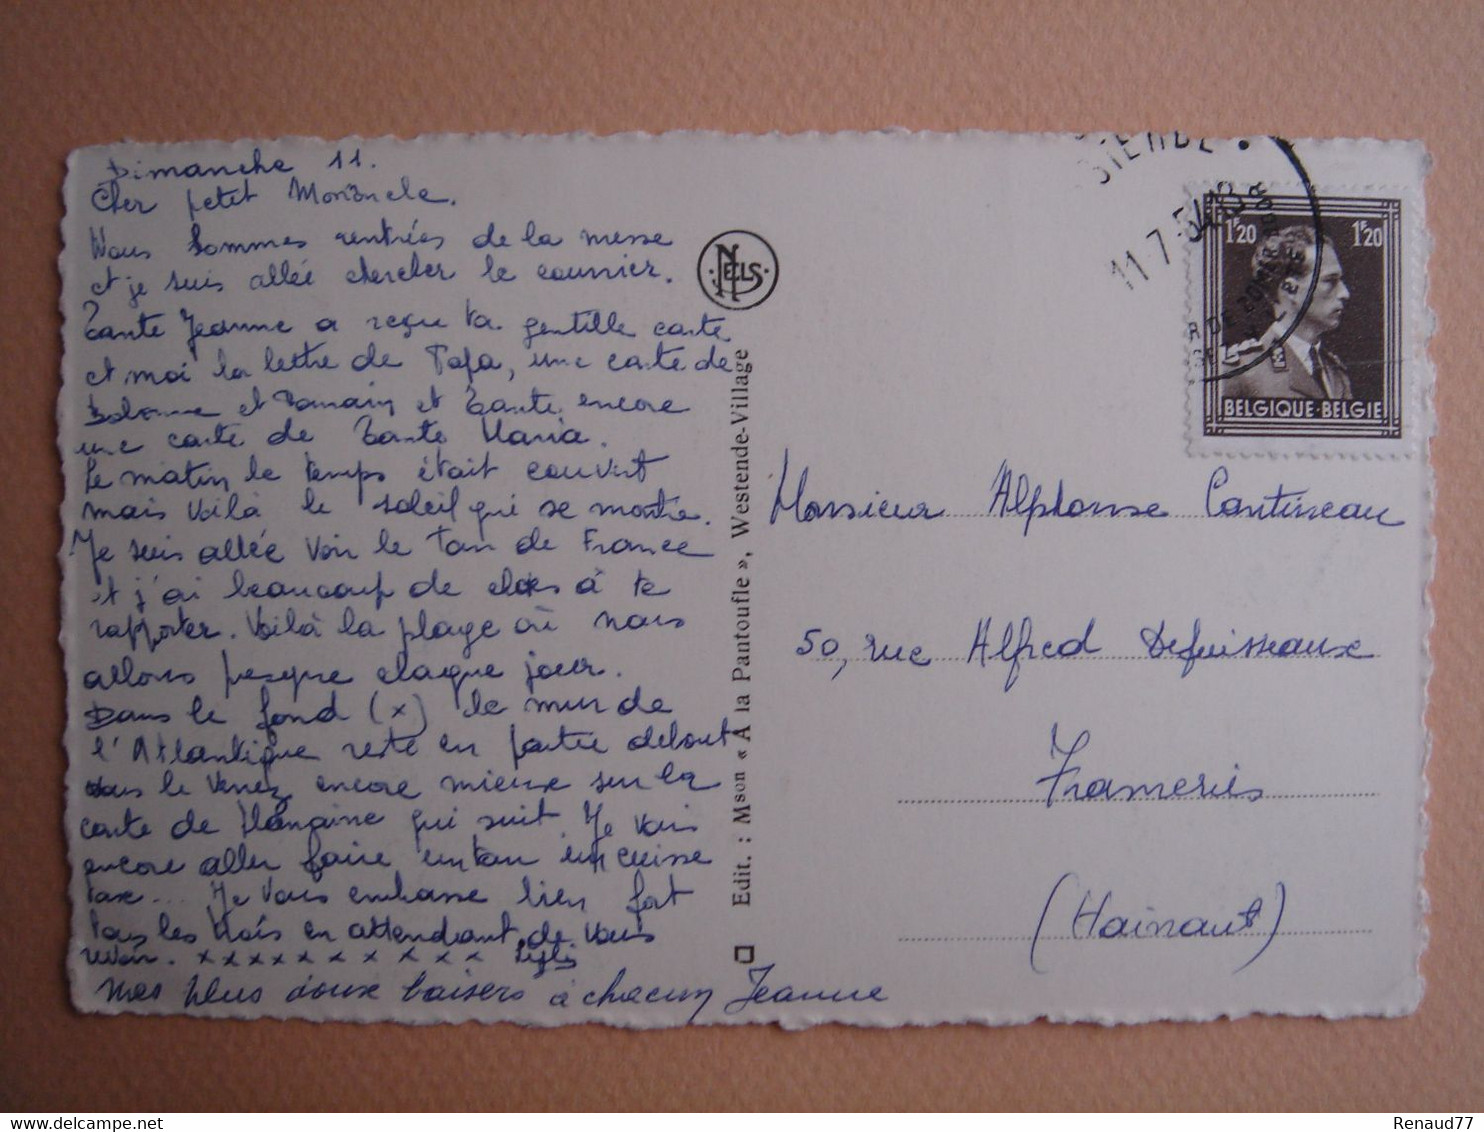 Dimanche 11.
Cher petit
Nous sommes rentrées de la messe
et je suis allée chercher le courrier.
Tante Jeanne a reçu ta gentille carte
et moi la lettre de Papa, une carte de
et Romain et Tante, encore
une carte de Tante Maria.
Le matin le temps était couvert
mais voilà le soleil qui se montre.
Je suis allée voir le Tour de France
et j'ai beaucoup de choses à te
rapporter. Voilà la plage où nous
allons presque chaque jour.
Dans le fond (x) le mur de
l'Atlantique reste en partie debout
vous le verrez encore mieux sur la
carte de qui suit. Je vais
encore aller faire un tour en cuisse
tax... Je vous embrasse bien fort
tous les trois en attendant de vous
revoir. x x x x x x x x x x
Mes plus doux baisers à chacun Jeanne
NELS
Edit. : Mson « A la Pantoufle », Westende-Village
STENDE
11-7-54
1F20 1F20
BELGIQUE-BELGIE
Monsieur Alphonse Cantineau
50, rue Alfred Defuisseaux
Frameries
(Hainaut)
delcampe.net
Renaud77